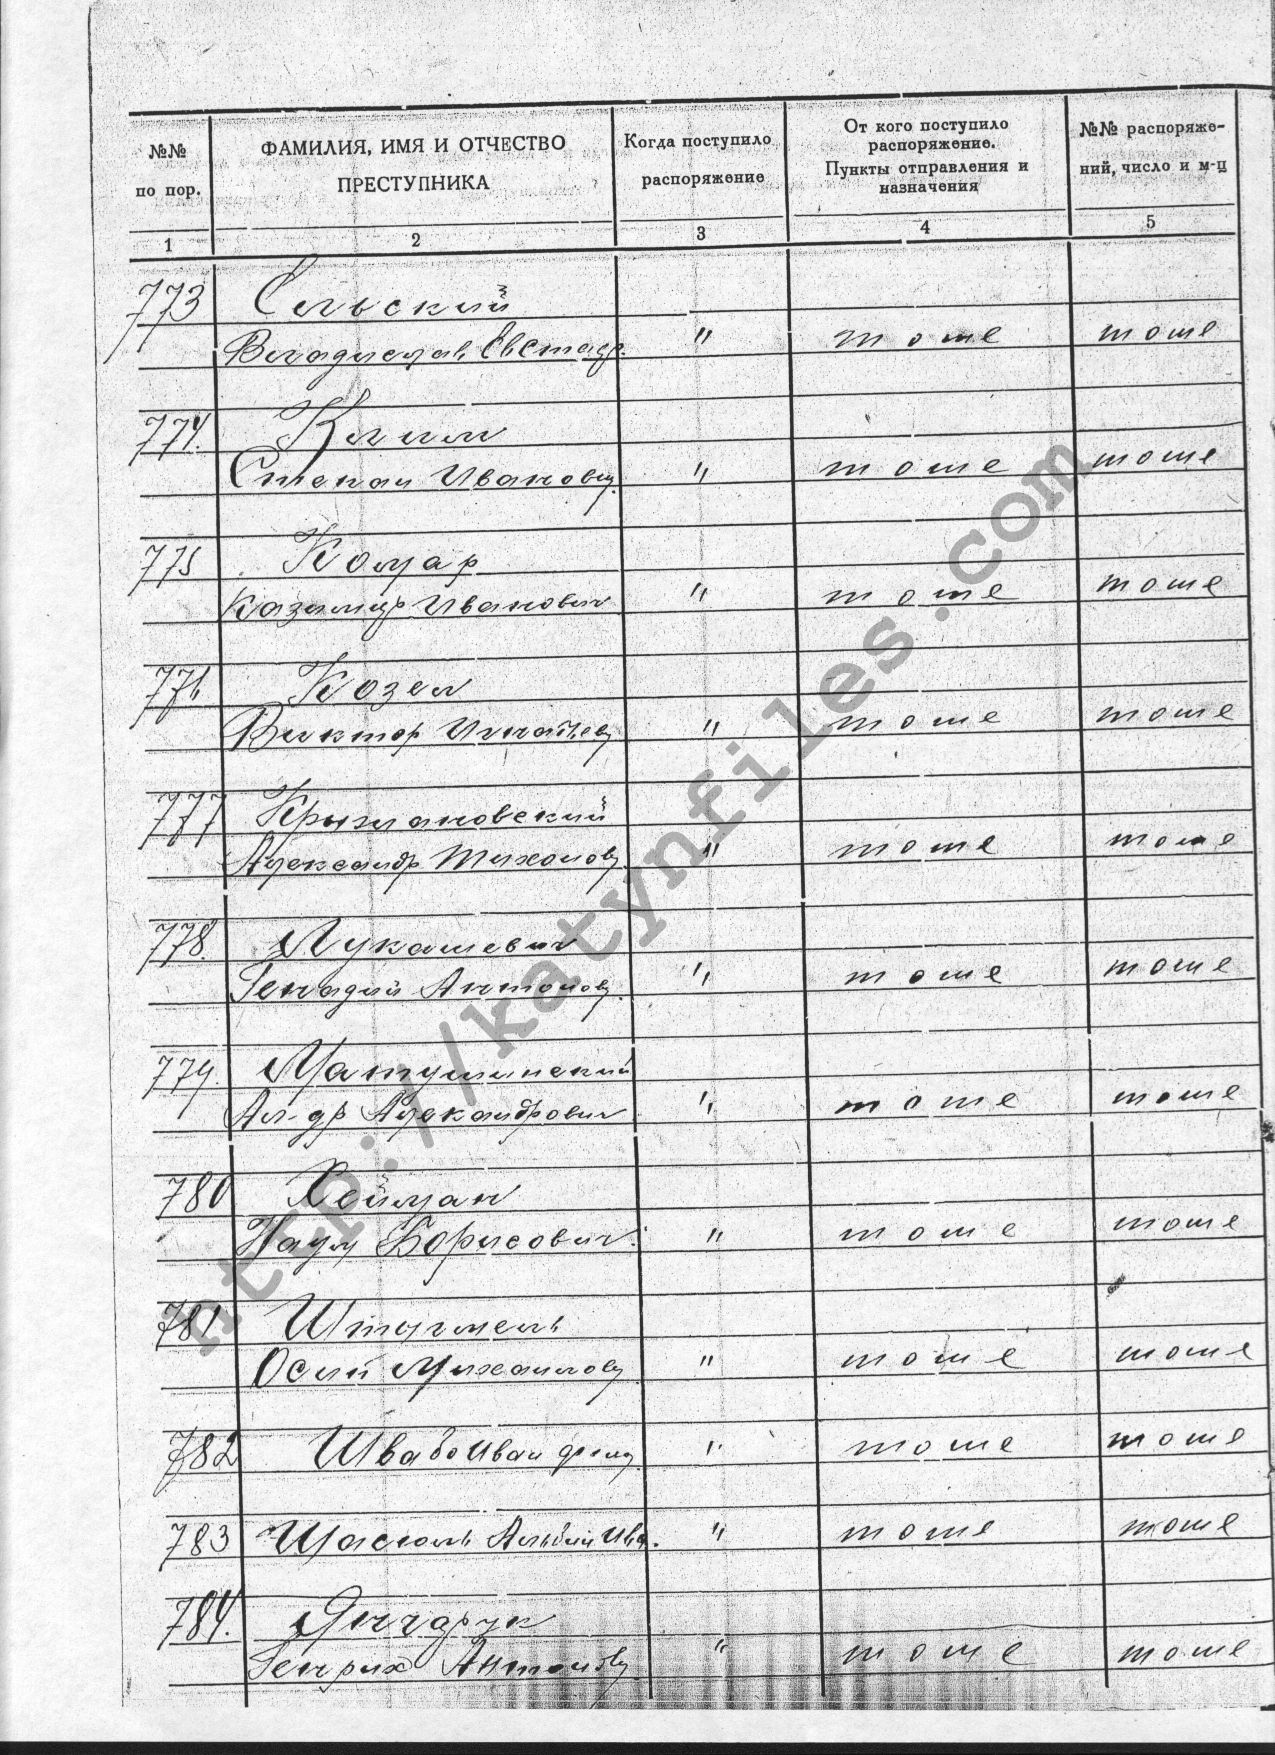 №№ по пор.
ФАМИЛИЯ, ИМЯ И ОТЧЕСТВО ПРЕСТУПНИКА
Когда поступило распоряжение
От кого поступило распоряжение. Пункты отправления и назначения
№№ распоряжений, число и м-ц
1 2 3 4 5
773 Сельский
Владислав Евстаф. " тоже тоже
774. Клим
Степан Иванович " тоже тоже
775 Комар
Казимир Иванович " тоже тоже
776 Козел
Виктор Игнатьев " тоже тоже
777 Крыжановский
Александр Тихонов " тоже тоже
778. Лукашевич
Генадий Антонов. " тоже тоже
779. Матушинский
Ал-др Александрович " тоже тоже
780 Хейман
Наум Борисович. " тоже тоже
781 Штурмель
Осип Михайлов " тоже тоже
782 Швабо Иван " тоже тоже
783 Альбин Ива. " тоже тоже
784. Янчарук
Генрих Антонов " тоже тоже
http://katynfiles.com